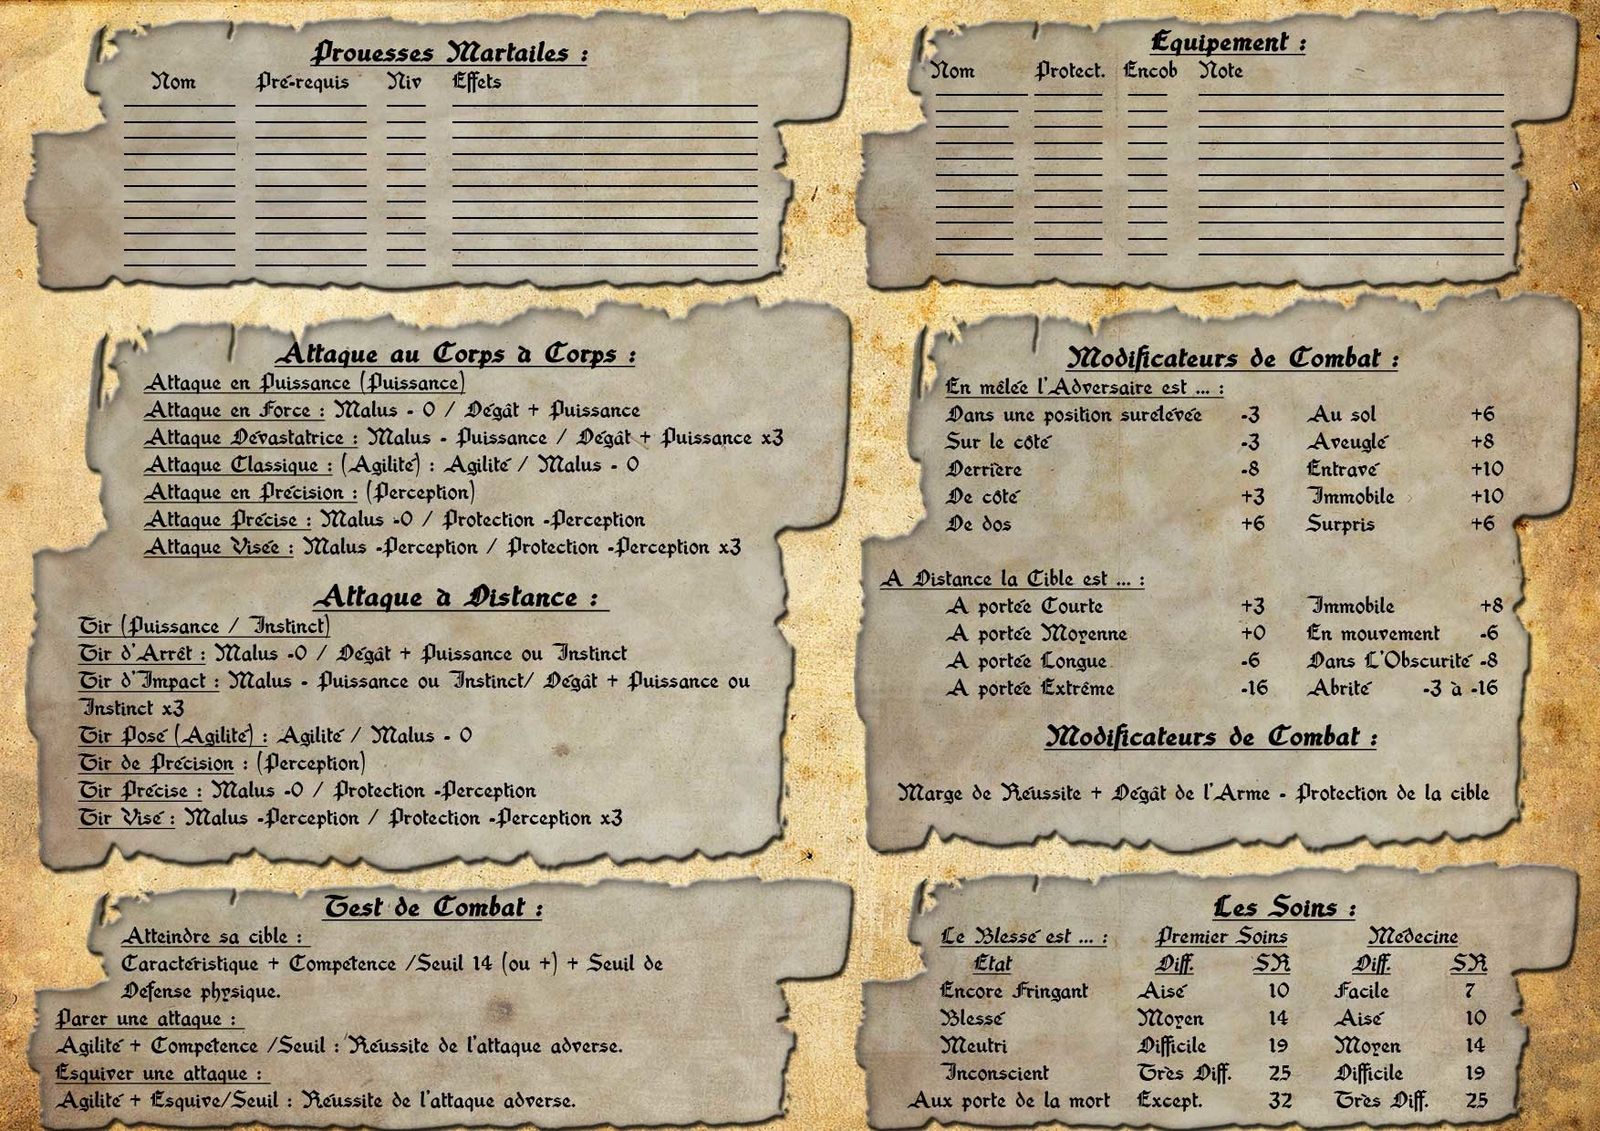 Prouesses Martailes :
Nom Pré-requis Niv Effets
Equipement :
Nom Protect. Encob Note
Attaque au Corps à Corps :
Attaque en Puissance (Puissance)
Attaque en Force : Malus - 0 / Dégât + Puissance
Attaque Dévastatrice : Malus - Puissance / Dégât + Puissance x3
Attaque Classique : (Agilité) : Agilité / Malus - 0
Attaque en Précision : (Perception)
Attaque Précise : Malus -0 / Protection -Perception
Attaque Visée : Malus -Perception / Protection -Perception x3
Attaque à Distance :
Tir (Puissance / Instinct)
Tir d'Arrêt : Malus -0 / Dégât + Puissance ou Instinct
Tir d'Impact : Malus - Puissance ou Instinct/ Dégât + Puissance ou
Instinct x3
Tir Posé (Agilité) : Agilité / Malus - 0
Tir de Précision : (Perception)
Tir Précise : Malus -0 / Protection -Perception
Tir Visé : Malus -Perception / Protection -Perception x3
Modificateurs de Combat :
En mêlée l'Adversaire est ... :
Dans une position surelévée -3 Au sol +6
Sur le côté -3 Aveuglé +8
Derrière -8 Entravé +10
De côté +3 Immobile +10
De dos +6 Surpris +6
A Distance la Cible est ... :
A portée Courte +3 Immobile +8
A portée Moyenne +0 En mouvement -6
A portée Longue -6 Dans L'Obscurité -8
A portée Extrême -16 Abrité -3 à -16
Modificateurs de Combat :
Marge de Réussite + Dégât de l'Arme - Protection de la cible
Test de Combat :
Atteindre sa cible :
Caractéristique + Compétence /Seuil 14 (ou +) + Seuil de
Défense physique.
Parer une attaque :
Agilité + Compétence /Seuil : Réussite de l'attaque adverse.
Esquiver une attaque :
Agilité + Esquive/Seuil : Réussite de l'attaque adverse.
Les Soins :
Le Blessé est ... : Premier Soins Médecine
Etat Diff. SR Diff. SR
Encore Fringant Aisé 10 Facile 7
Blessé Moyen 14 Aisé 10
Meutri Difficile 19 Moyen 14
Inconscient Très Diff. 25 Difficile 19
Aux porte de la mort Except. 32 Très Diff. 25